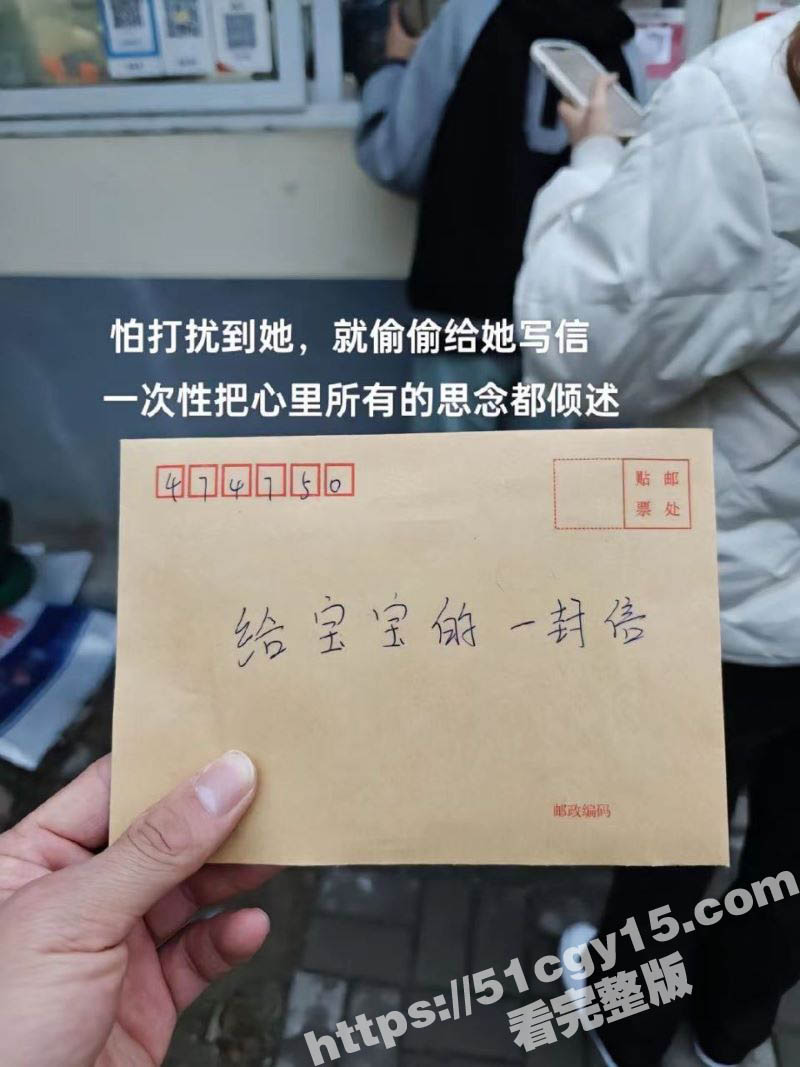 怕打扰到她，就偷偷给她写信
一次性把心里所有的思念都倾述
474750
贴邮
票处
给宝宝的一封信
邮政编码
https://51cgy15.com
看完整版